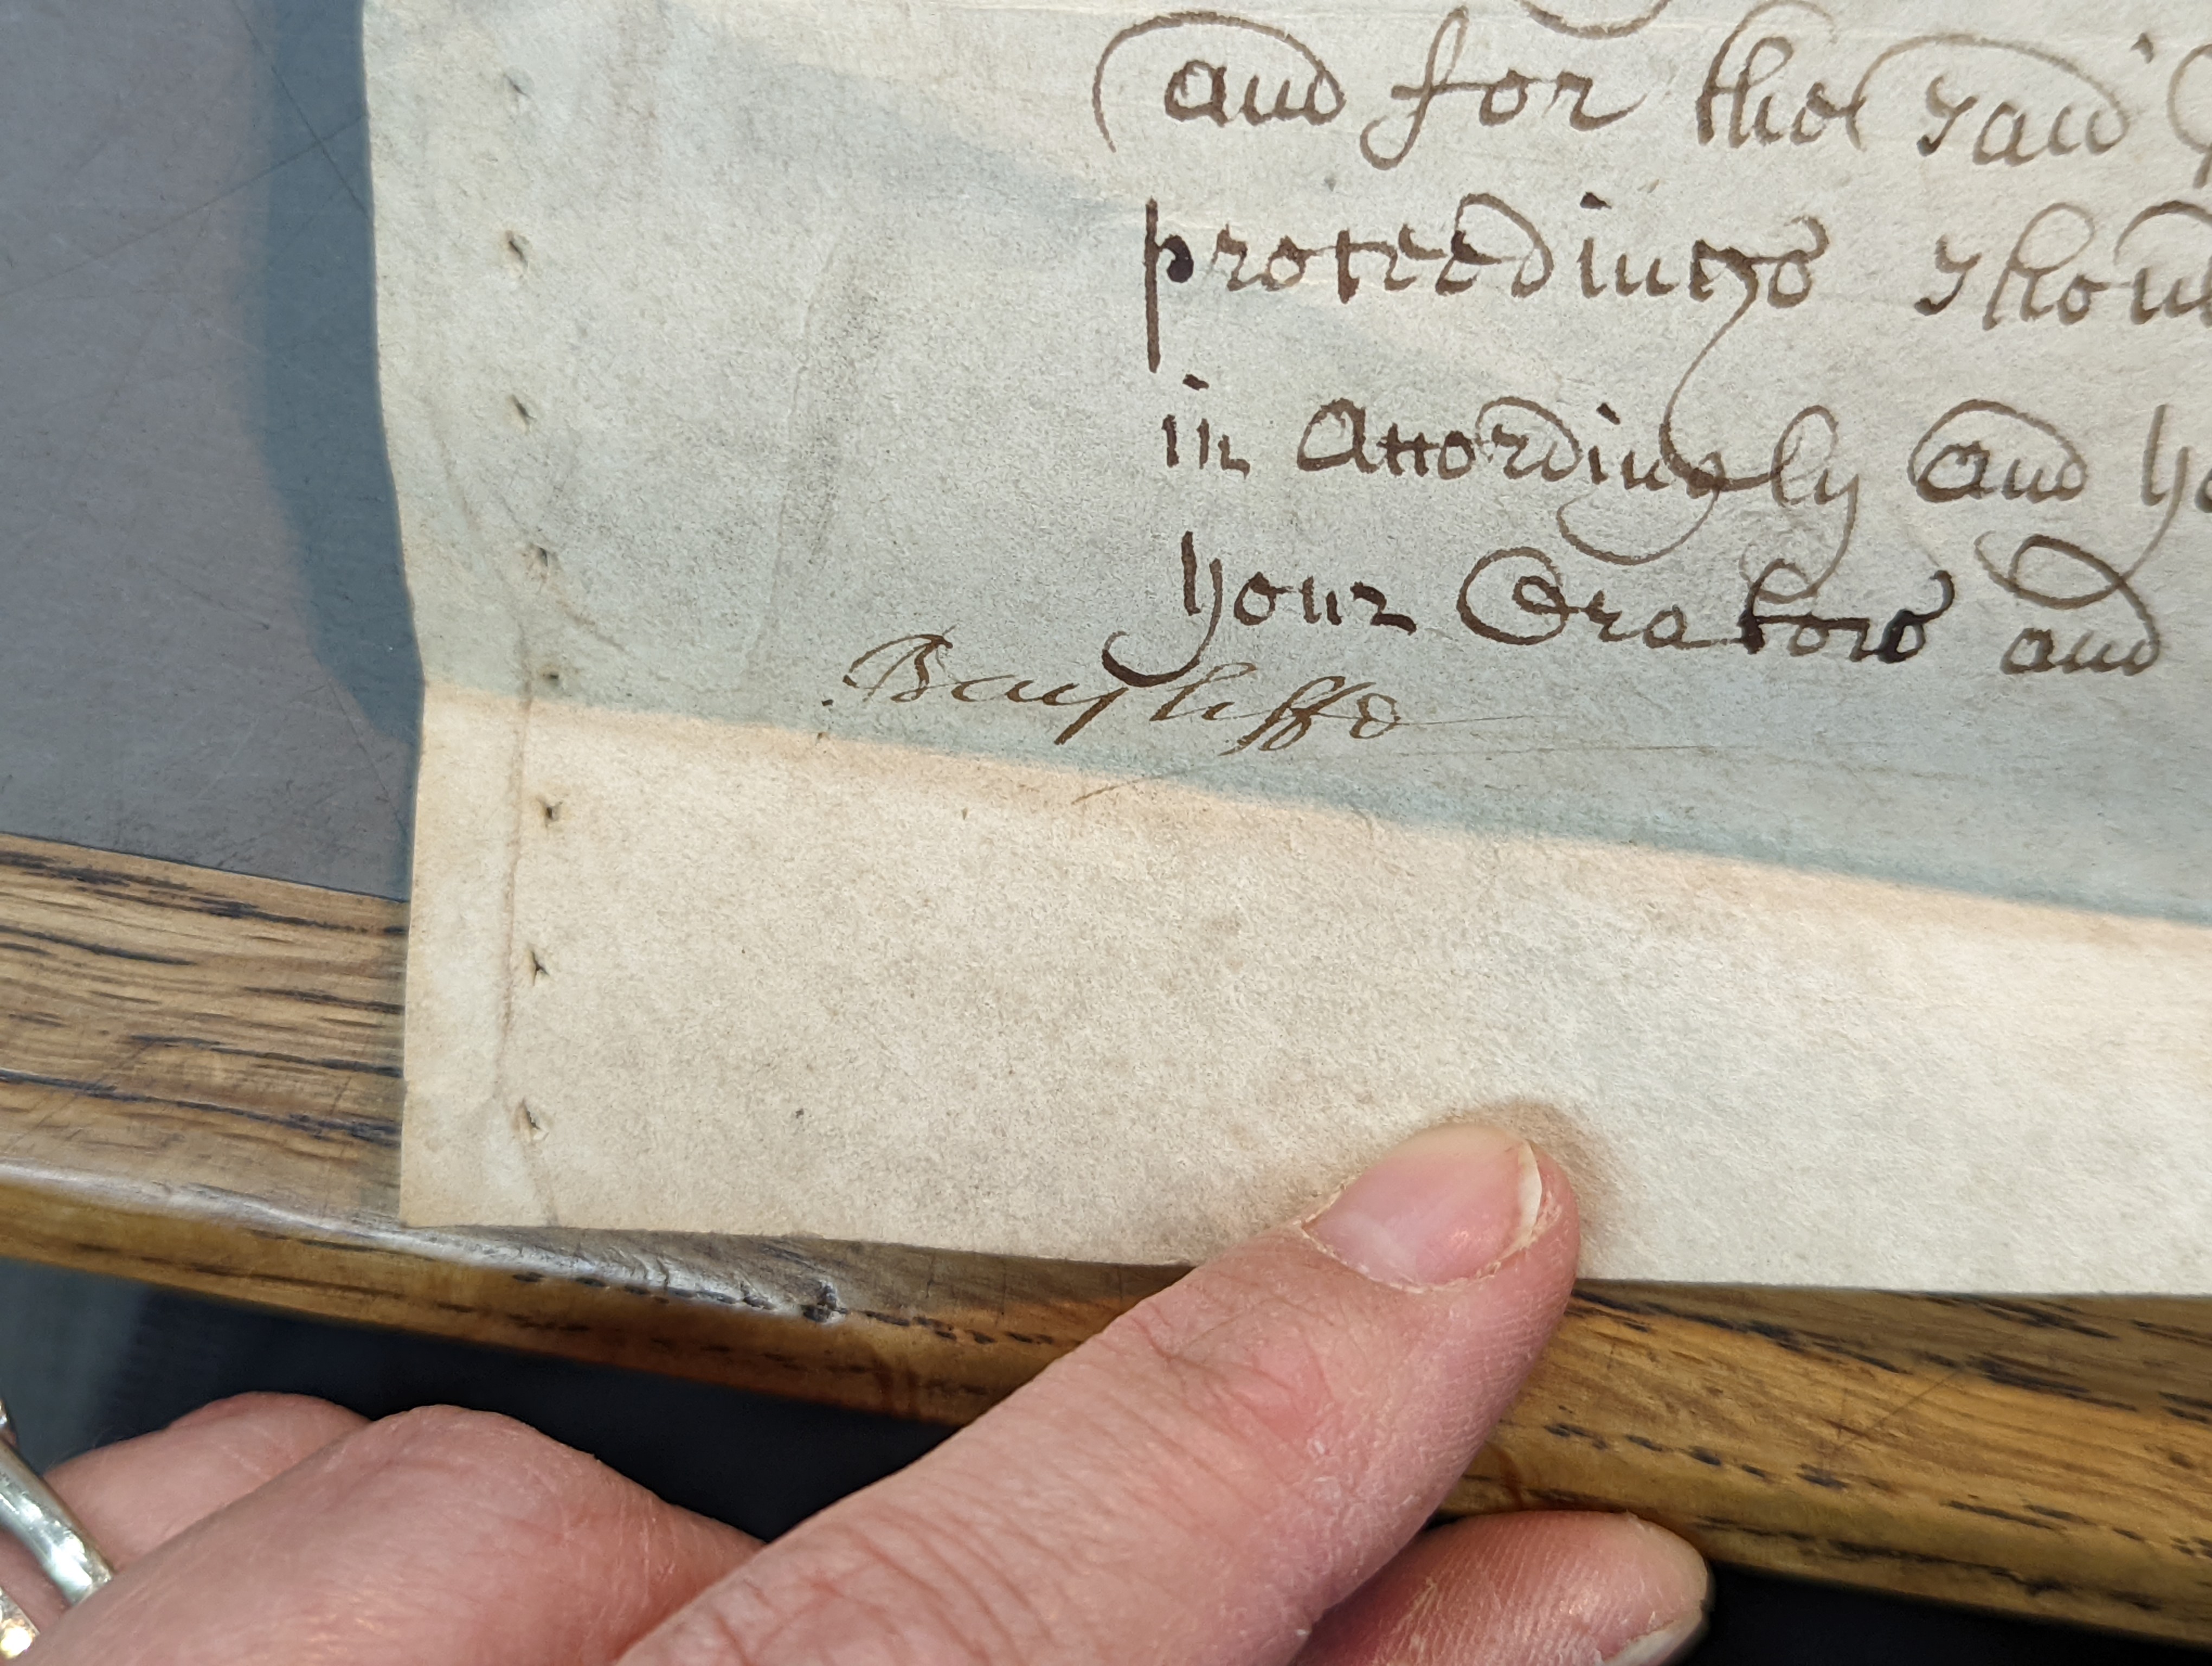 and for the said
proceedings shou
in Accordingly and yo
your Orators and
Bayliffe